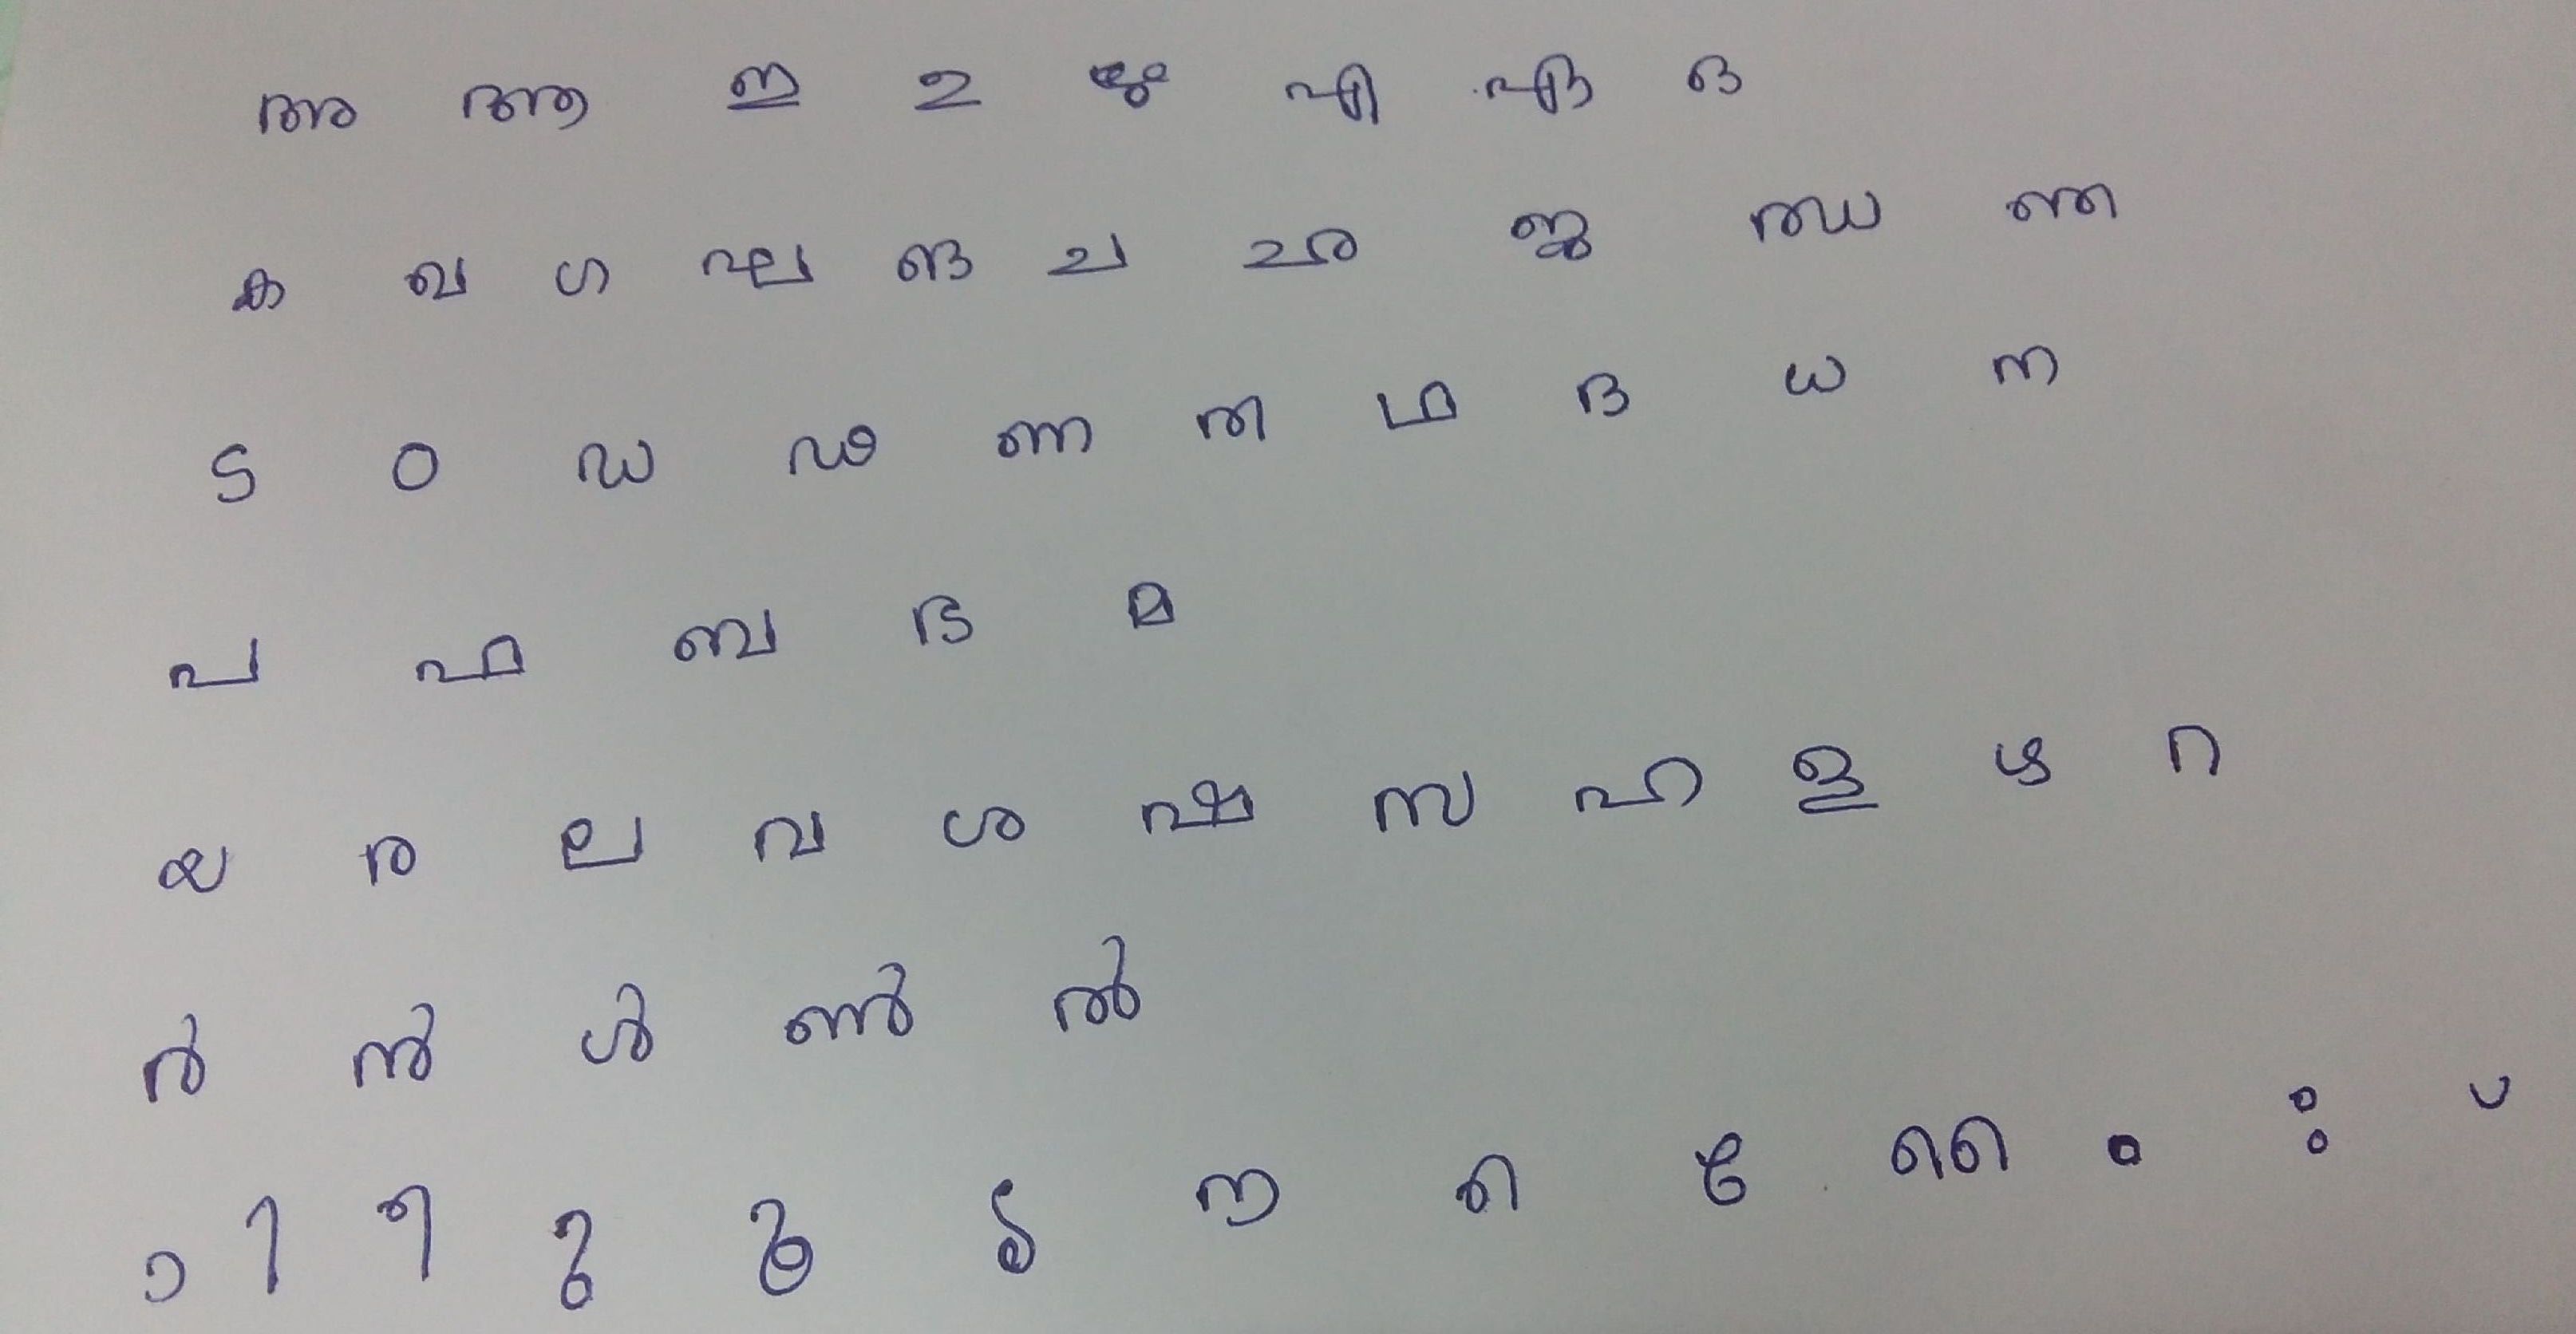 അ ആ ഇ ഉ ഋ എ ഏ ഒ
ക ഖ ഗ ഘ ങ ച ഛ ജ ഝ ഞ
ട ഠ ഡ ഢ ണ ത ഥ ദ ധ ന
പ ഫ ബ ഭ മ
യ ര ല വ ശ ഷ സ ഹ ള ഴ റ
ർ ൻ ൾ ൺ ൽ
ാ ി ീ ു ൂ ൃ ന െ േ ൈ ം ഃ ്